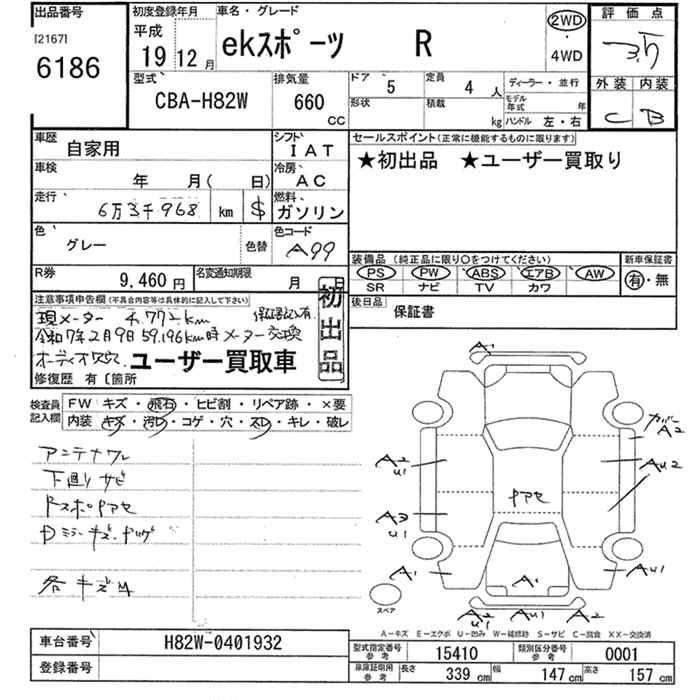 出品番号
[2167]
6186
初度登録年月
平成
19年12月
車名・グレード
ekスポーツ R
2WD
・
4WD
評価点
3.5
外装 内装
C B
型式
CBA-H82W
排気量
660
CC
ドア 5
定員 4人
形状
積載 kg
ディーラー・並行
モデル年式 年
ハンドル 左・右
車歴 自家用
シフト IAT
車検 年 月( 日)
冷房 AC
走行 6万3千968 km $
燃料 ガソリン
色 グレー 色替
色コード A99
R券 9,460円
名変通知期限 月 日
セールスポイント(正常に機能するものに限ります)
★初出品 ★ユーザー買取り
装備品(純正品に限り○をつけてください)
PS PW ABS エアB AW
SR ナビ TV カワ
新車保証書
有・無
後日品 保証書
注意事項申告欄(不具合内容等は具体的に記入して下さい)
現メーター 4,772km 保証書記入有
令和7年2月9日 59,196km時メーター交換
オーディオ欠 ユーザー買取車
初出品
修復歴 有〔箇所
検査員記入欄
FW キズ・飛石・ヒビ割・リペア跡・×要
内装・キズ・汚レ・コゲ・穴・スレ・キレ・破レ
アンテナワレ
下廻りサビ
ドスポPアセ
Dミラーキズ・
各キズ凹
A1
カバーA2
A2
U1
AU2
Pアセ
A3
U1
A1
A1
AU1
スペア
A2
U1
AU1
A2
A-キズ E-エクボ U-凹み W-補修跡 S-サビ C-腐食 XX-交換済
車台番号 H82W-0401932
登録番号
型式指定番号 参考 15410
類別区分番号 参考 0001
車庫証明用 参考 長さ 339 cm 幅 147 cm 高さ 157 cm